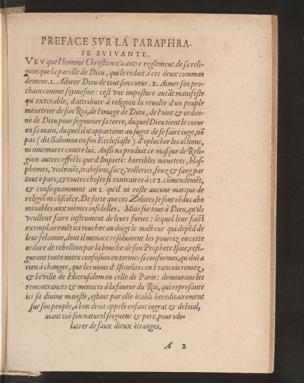 PREFACE SVR LA PARAPHRA-
SE SUIVANTE.
VEV que l'homme Chrestien n'a autre reglement de sa reli-
gion que la parolle de Dieu, qui se reduit à ces deux comman
demens. 1. Adorer Dieu de tout son coeur. 2. Aimer son pro-
chain comme soymesme: c'est vne imposture autāt manifeste
qu'execrable, d'attribuer à religion la reuolte d'un peuple
meurtrier de son Roi, de l'image de Dieu, de l'oint & ordon-
né de Dieu pour seigneurier sa terre, duquel Dieu tient le coeur
en sa main, duquel il n'appartient au suget de se faire iuge, nō
pas (dit Salomon en son Ecclesiaste) d'eplucher les actions,
ni murmurer contre lui. Aussi n'a produit ce masque de Reli-
gion autres effects que d'impieté: horribles meurtres, blas-
phemes, violemēs, trahisons, sacz, volleries, feuz & sang par
tout épars, & toutes choses si contraires à ce 2. cōmendemēt,
& consequenment au 1. qu'il ni reste aucune marque de
religiō ni cōsciēce. De sorte que ces Zelateurs se sont rēdus abo
minables aux mêmes infidelles. Mais sur tout à Dieu, qu'ils
veullent faire instrument de leurs furies: lequel leur faict
exemplairement ici toucher au doigt le malheur qui depēd de
leur felonnie, dont il menace resolument les pourvez en ceste
ardure de rebellion par la bouche de son Prophete Isaie, refi-
gurant toute nostre confusion en termes si conformes, qu'il n'i a
rien à changer, que les noms d'Israelites en francois reuoltez,
& la ville de Hierusalem en celle de Paris: demeurans les
remontrances & menaces à la faueur du Roi, qui represante
ici sa diuine maiesté, estant par elle établi hereditairement
sur son peuple, à bon droit appellé enfant ingrat & deloial,
aiant tüé son naturel seigneur & pere, pour ido-
latrer de faux dieux étranges.
A 2